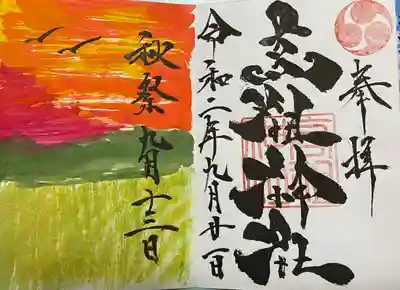 奉拝
神社
令和二年九月廿一日
秋祭 九月十三日